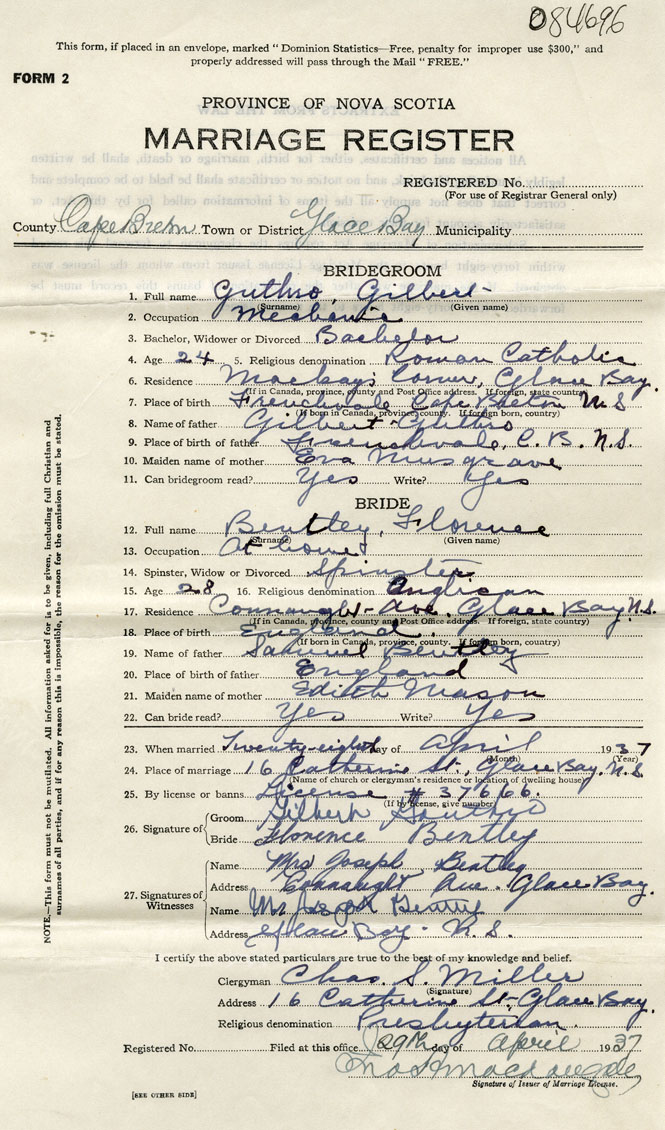 084696
This form, if placed in an envelope, marked "Dominion Statistics—Free, penalty for improper use $300," and
properly addressed will pass through the Mail "FREE."
FORM 2
PROVINCE OF NOVA SCOTIA
MARRIAGE REGISTER
REGISTERED No.
(For use of Registrar General only)
County Cape Breton Town or District Glace Bay Municipality
BRIDEGROOM
1. Full name Guthro, Gilbert
(Surname) (Given name)
2. Occupation Mechanic
3. Bachelor, Widower or Divorced Bachelor
4. Age 24 5. Religious denomination Roman Catholic
6. Residence Mackay's Corner, Glace Bay.
(If in Canada, province, county and Post Office address. If foreign, state country)
7. Place of birth Frenchvale Cape Breton N.S
(If born in Canada, province, county. If foreign born, country)
8. Name of father Gilbert Guthro
9. Place of birth of father Frenchvale, C.B. N.S.
10. Maiden name of mother Eva Musgrave
11. Can bridegroom read? Yes Write? Yes
BRIDE
12. Full name Bentley, Florence
(Surname) (Given name)
13. Occupation At home
14. Spinster, Widow or Divorced Spinster
15. Age 28 16. Religious denomination Anglican
17. Residence Connaught Ave. Glace Bay N.S.
(If in Canada, province, county and Post Office address. If foreign, state country)
18. Place of birth England.
(If born in Canada, province, county. If foreign born, country)
19. Name of father Samuel Bentley
20. Place of birth of father England
21. Maiden name of mother Edith Mason
22. Can bride read? Yes Write? Yes
23. When married Twenty-eighth day of April 1937
(Month) (Year)
24. Place of marriage 16 Catherine St., Glace Bay. N.S
(Name of church or clergyman's residence or location of dwelling house)
25. By license or banns License # 37666.
(If by license, give number)
26. Signature of Groom Gilbert Guthro
Bride Florence Bentley
27. Signatures of Witnesses Name Mrs Joseph Bentley
Address Connaught Ave. Glace Bay.
Name Mr Bentley
Address Glace Bay. N.S.
I certify the above stated particulars are true to the best of my knowledge and belief.
Clergyman Chas. S. Miller
(Signature)
Address 16 Catherine St. Glace Bay.
Religious denomination Presbyterian.
Registered No. Filed at this office 29th day of April 1937
Signature of Issuer of Marriage License.
[SEE OTHER SIDE]
NOTE.—This form must not be mutilated. All information asked for is to be given, including full Christian and
surnames of all parties, and if for any reason this is impossible, the reason for the omission must be stated.